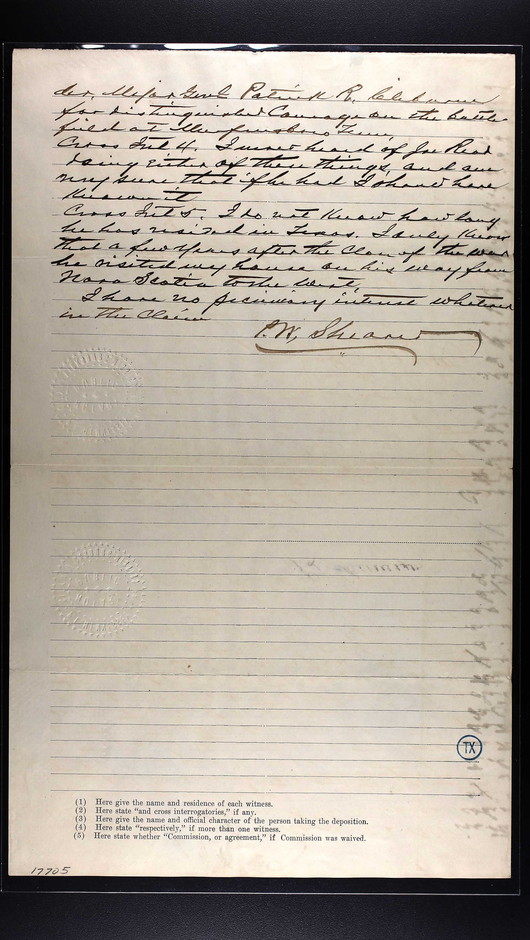 der, Major Genl Patrick R. Cleburne
for distinguished Courage on the battle
field at Murfreesboro Tenn,
Cross Int 4. I never heard of Joe Read
doing either of these things, and am
very sure that if he had I should have
known it
Cross Int 5. I do not Know how long
he has resided in Texas. I only Know
that a few years after the Close of the War
he visited my house on his way from
Nova Scotia to the West,
I have no pecuniary interest whatever
in the Claim
P. W,
TX
(1) Here give the name and residence of each witness.
(2) Here state "and cross interrogatories," if any.
(3) Here give the name and official character of the person taking the deposition.
(4) Here state "respectively," if more than one witness.
(5) Here state whether "Commission, or agreement," if Commission was waived.
17705